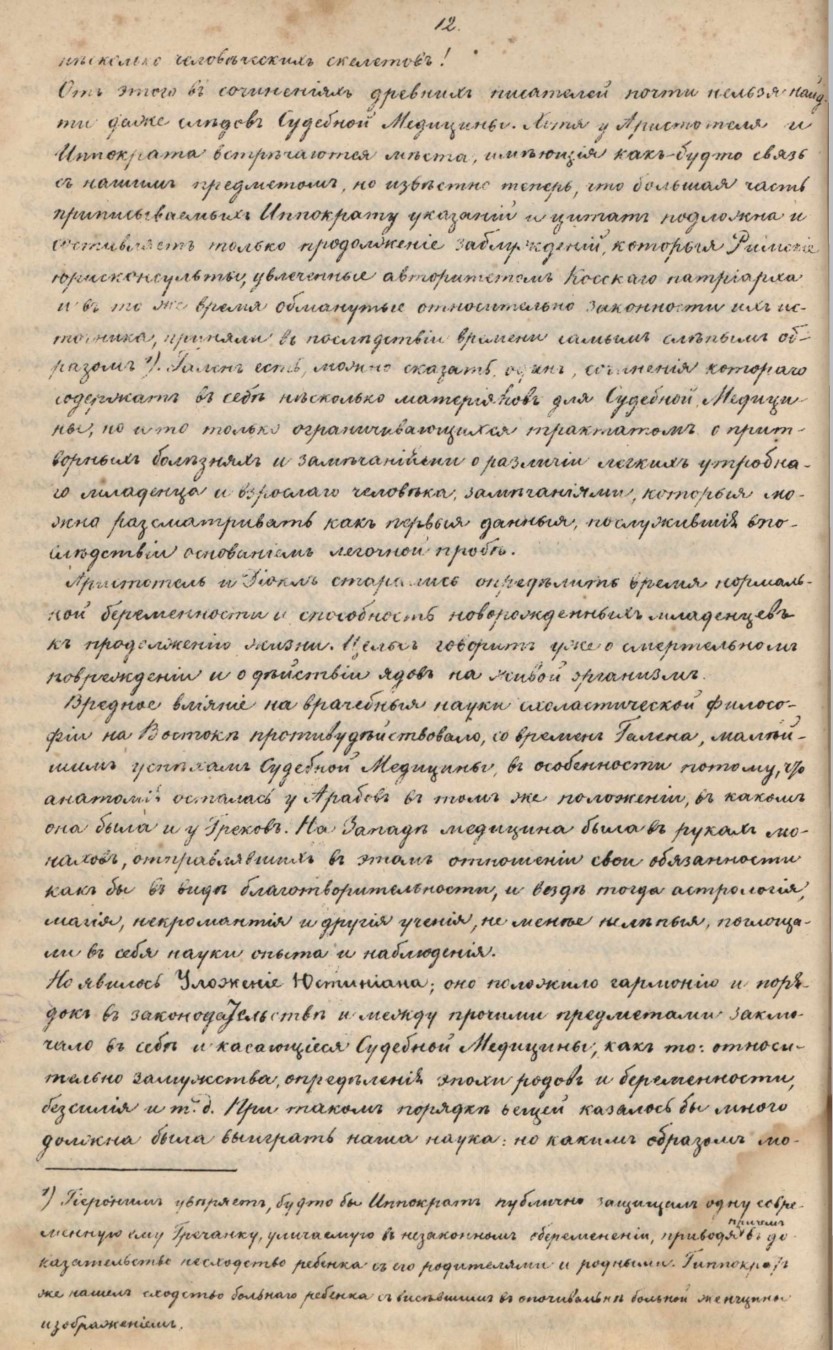 12.
нѣсколько человѣческихъ скелетовъ!
Отъ этого въ сочиненіяхъ древнихъ писателей почти нельзя най-
ти даже слѣдовъ Судебной Медицины. Хотя у Аристотеля и
Иппократа встрѣчаются мѣста, имѣющія какъ-будто связь
съ нашимъ предметомъ, но извѣстно теперь, что большая часть
приписываемыхъ Иппократу указаній и цитатъ подложна и
составляетъ только продолженіе заблужденій, которыя Римскіе
юрисконсульты, увлеченные авторитетомъ Косскаго патріарха
и въ то же время обманутые относительно законности ихъ ис-
точника, приняли въ послѣдствіи времени самымъ слѣпымъ об-
разомъ ¹). Галенъ есть, можно сказать, одинъ, сочиненія котораго
содержатъ въ себѣ нѣсколько матеріяловъ для Судебной Медици-
ны, но и то только ограничивающихся трактатомъ о прит-
ворныхъ болѣзняхъ и замѣчаніями о различіи легкихъ утробна-
го младенца и взрослаго человѣка, замѣчаніями, которыя мо-
жно разсматривать какъ первыя данныя, послужившія впо-
слѣдствіи основаніемъ легочной пробѣ.
Аристотель и Діоклъ старались опредѣлить время нормаль-
ной беременности и способность новорожденныхъ младенцевъ
къ продолженію жизни. Цельсъ говоритъ уже о смертельномъ
поврежденіи и о дѣйствіи ядовъ на живой организмъ.
Вредное вліяніе на врачебныя науки схоластической филосо-
фіи на Востокѣ противудѣйствовало, со временъ Галена, малѣй-
шимъ успѣхамъ Судебной Медицины, въ особенности потому, что
анатомія осталась у Арабовъ въ томъ же положеніи, въ какомъ
она была и у Грековъ. На Западѣ медицина была въ рукахъ мо-
наховъ, отправлявшихъ въ этомъ отношеніи свои обязанности
какъ бы въ видѣ благотворительности, и вездѣ тогда астрологія,
магія, некромантія и другія ученія, не менѣе нелѣпыя, поглоща-
ли въ себя науки опыта и наблюденія.
Но явилось Уложеніе Юстиніана; оно положило гармонію и поря-
докъ въ законодательствѣ и между прочими предметами заклю-
чало въ себѣ и касающіеся Судебной Медицины, какъ то: относи-
тельно замужства, опредѣленія эпохи родовъ и беременности,
безсилія и т. д. При такомъ порядкѣ вещей казалось бы много
должна была выиграть наша наука: но какимъ образомъ мо-
¹) Гіеронимъ увѣряетъ, будто бы Иппократъ публично защищалъ одну совре-
менную ему Гречанку, уличаемую въ незаконномъ оберемененіи, приводя причемъ въ до-
казательство несходство ребенка съ его родителями и родными. Гиппократъ
же нашелъ сходство больнаго ребенка съ висѣвшимъ въ опочивальнѣ больной женщины
изображеніемъ.